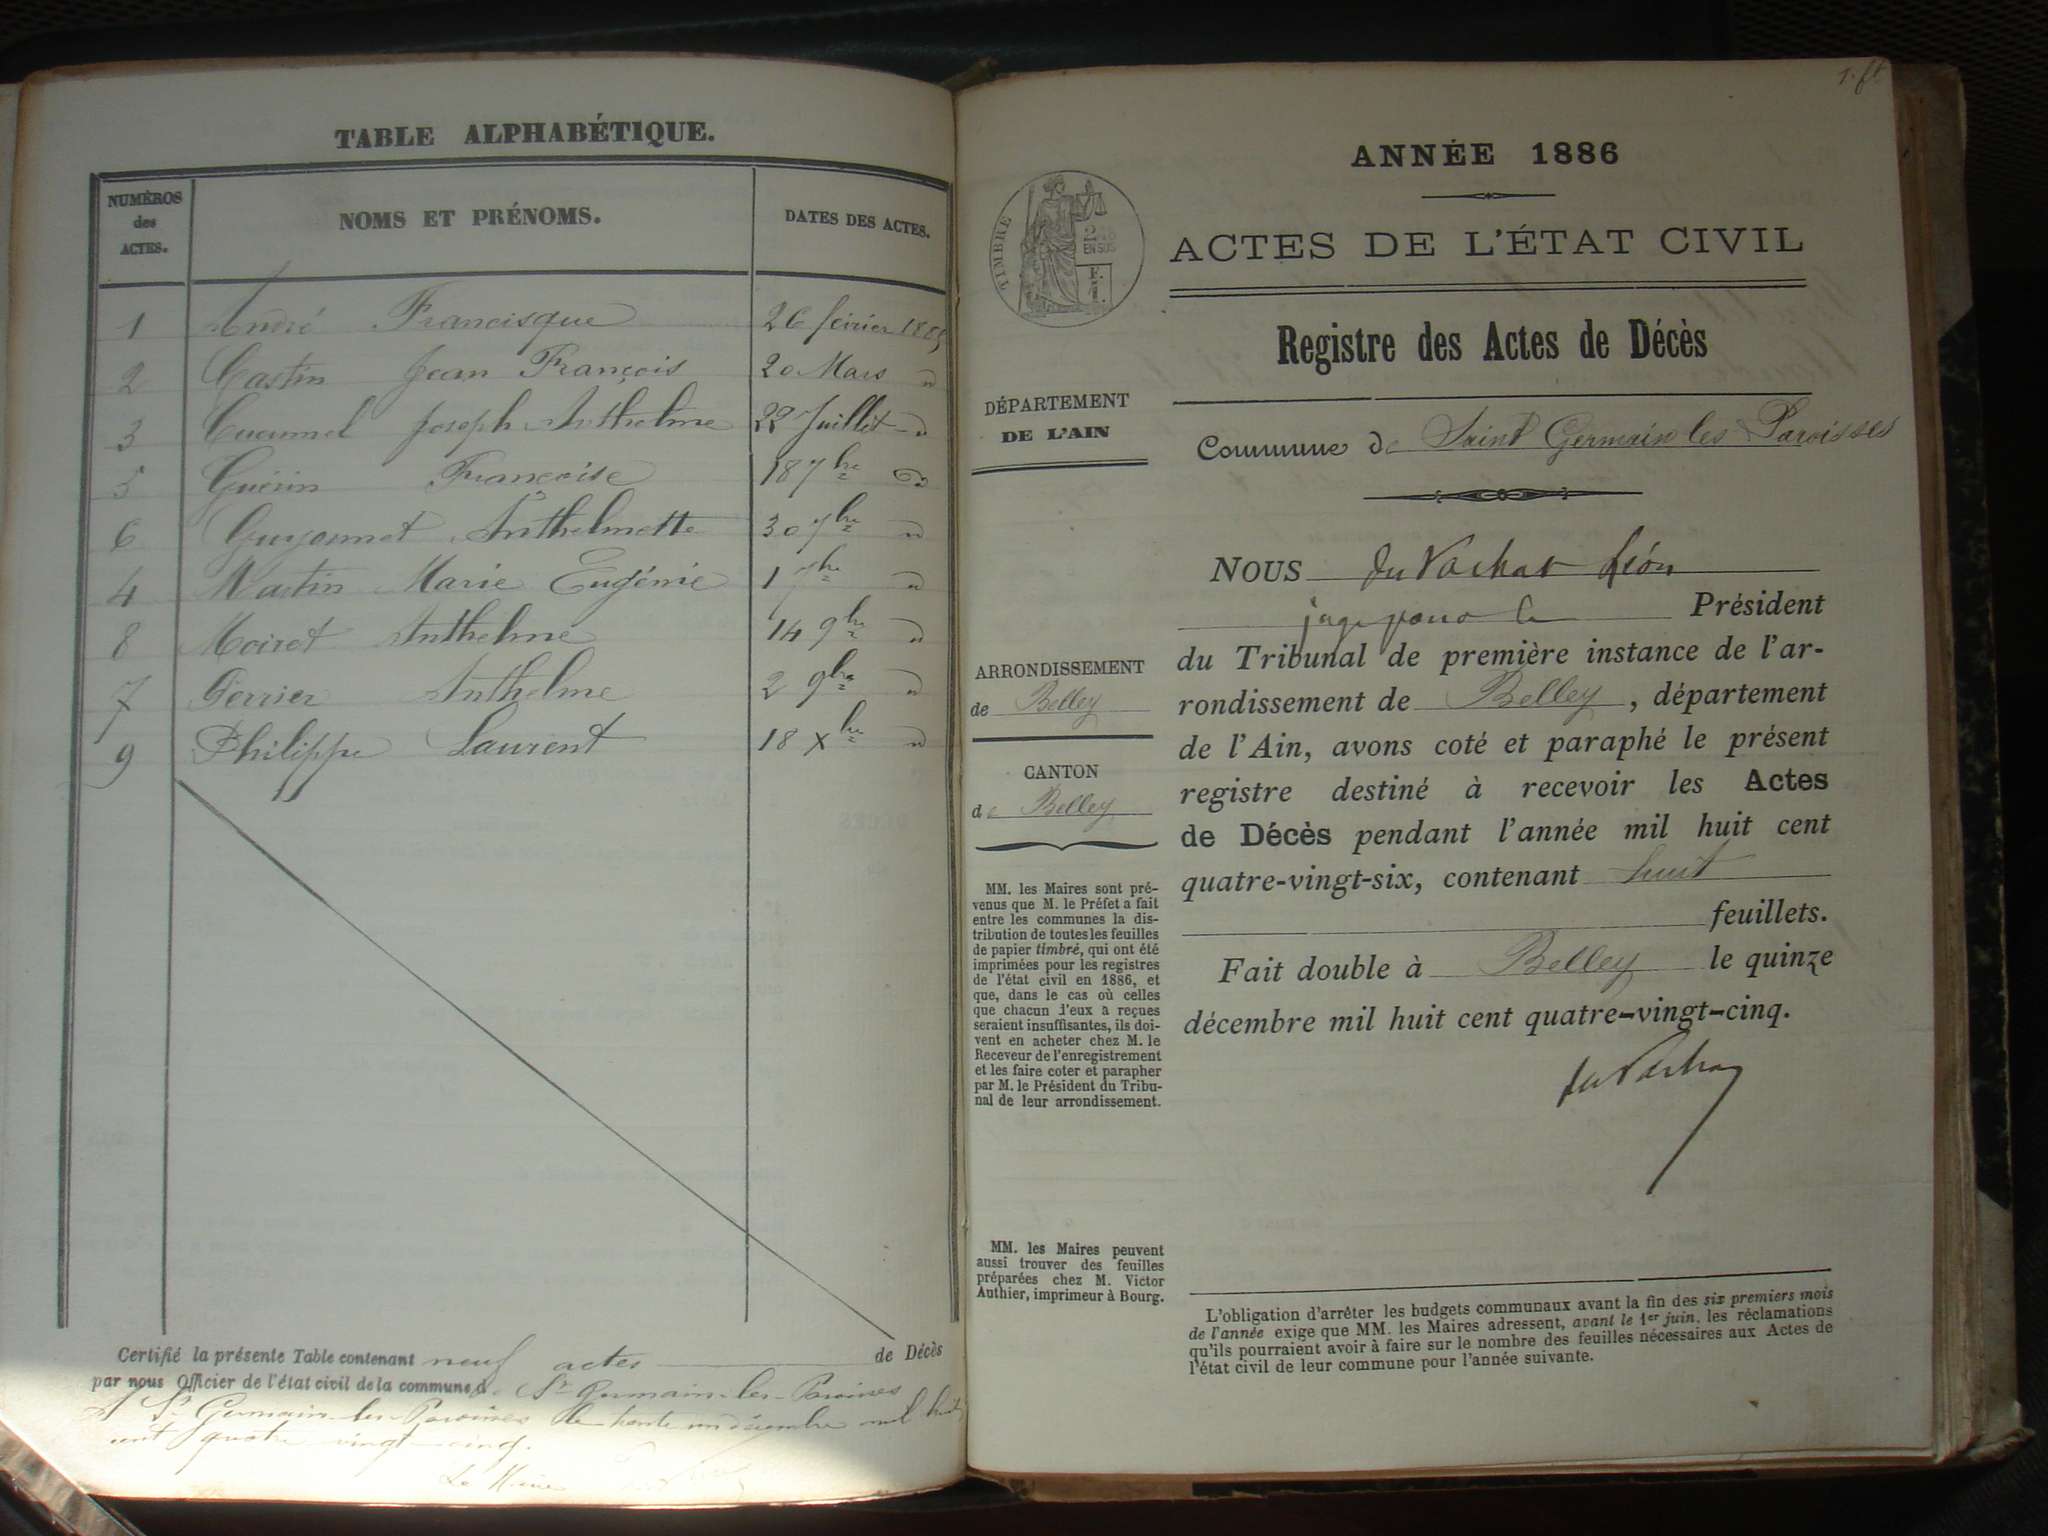 TABLE ALPHABÉTIQUE.
NUMÉROS des ACTES.
NOMS ET PRÉNOMS.
DATES DES ACTES.
1 André Francisque 26 février 1885
2 Castin Jean François 20 Mars "
3 Cucumel Joseph Anthelme 22 Juillet "
5 Guérin Françoise 18 7bre "
6 Guyonnet Anthelmette 30 7bre "
4 Martin Marie Eugénie 1 7bre "
8 Moiret Anthelme 14 9bre "
7 Perrier Anthelme 2 9bre "
9 Philippe Laurent 18 Xbre "
Certifié la présente Table contenant neuf actes de Décès
par nous Officier de l'état civil de la commune de St Germain-les-Paroisses
A St Germain-les-Paroisses le trente un décembre mil huit
cent quatre vingt cinq.
Le Maire
1. ft
ANNÉE 1886
TIMBRE
EN SUS
ACTES DE L'ÉTAT CIVIL
Registre des Actes de Décès
DÉPARTEMENT
DE L'AIN
Commune de Saint Germain les Paroisses
ARRONDISSEMENT
de Belley
CANTON
de Belley
MM. les Maires sont pré-
venus que M. le Préfet a fait
entre les communes la dis-
tribution de toutes les feuilles
de papier timbré, qui ont été
imprimées pour les registres
de l'état civil en 1886, et
que, dans le cas où celles
que chacun d'eux a reçues
seraient insuffisantes, ils doi-
vent en acheter chez M. le
Receveur de l'enregistrement
et les faire coter et parapher
par M. le Président du Tribu-
nal de leur arrondissement.
MM. les Maires peuvent
aussi trouver des feuilles
préparées chez M. Victor
Authier, imprimeur à Bourg.
NOUS du Vachat Léon
juge pour le Président
du Tribunal de première instance de l'ar-
rondissement de Belley, département
de l'Ain, avons coté et paraphé le présent
registre destiné à recevoir les Actes
de Décès pendant l'année mil huit cent
quatre-vingt-six, contenant huit
feuillets.
Fait double à Belley le quinze
décembre mil huit cent quatre-vingt-cinq.
du Vachat
L'obligation d'arrêter les budgets communaux avant la fin des six premiers mois
de l'année exige que MM. les Maires adressent, avant le 1er juin, les réclamations
qu'ils pourraient avoir à faire sur le nombre des feuilles nécessaires aux Actes de
l'état civil de leur commune pour l'année suivante.